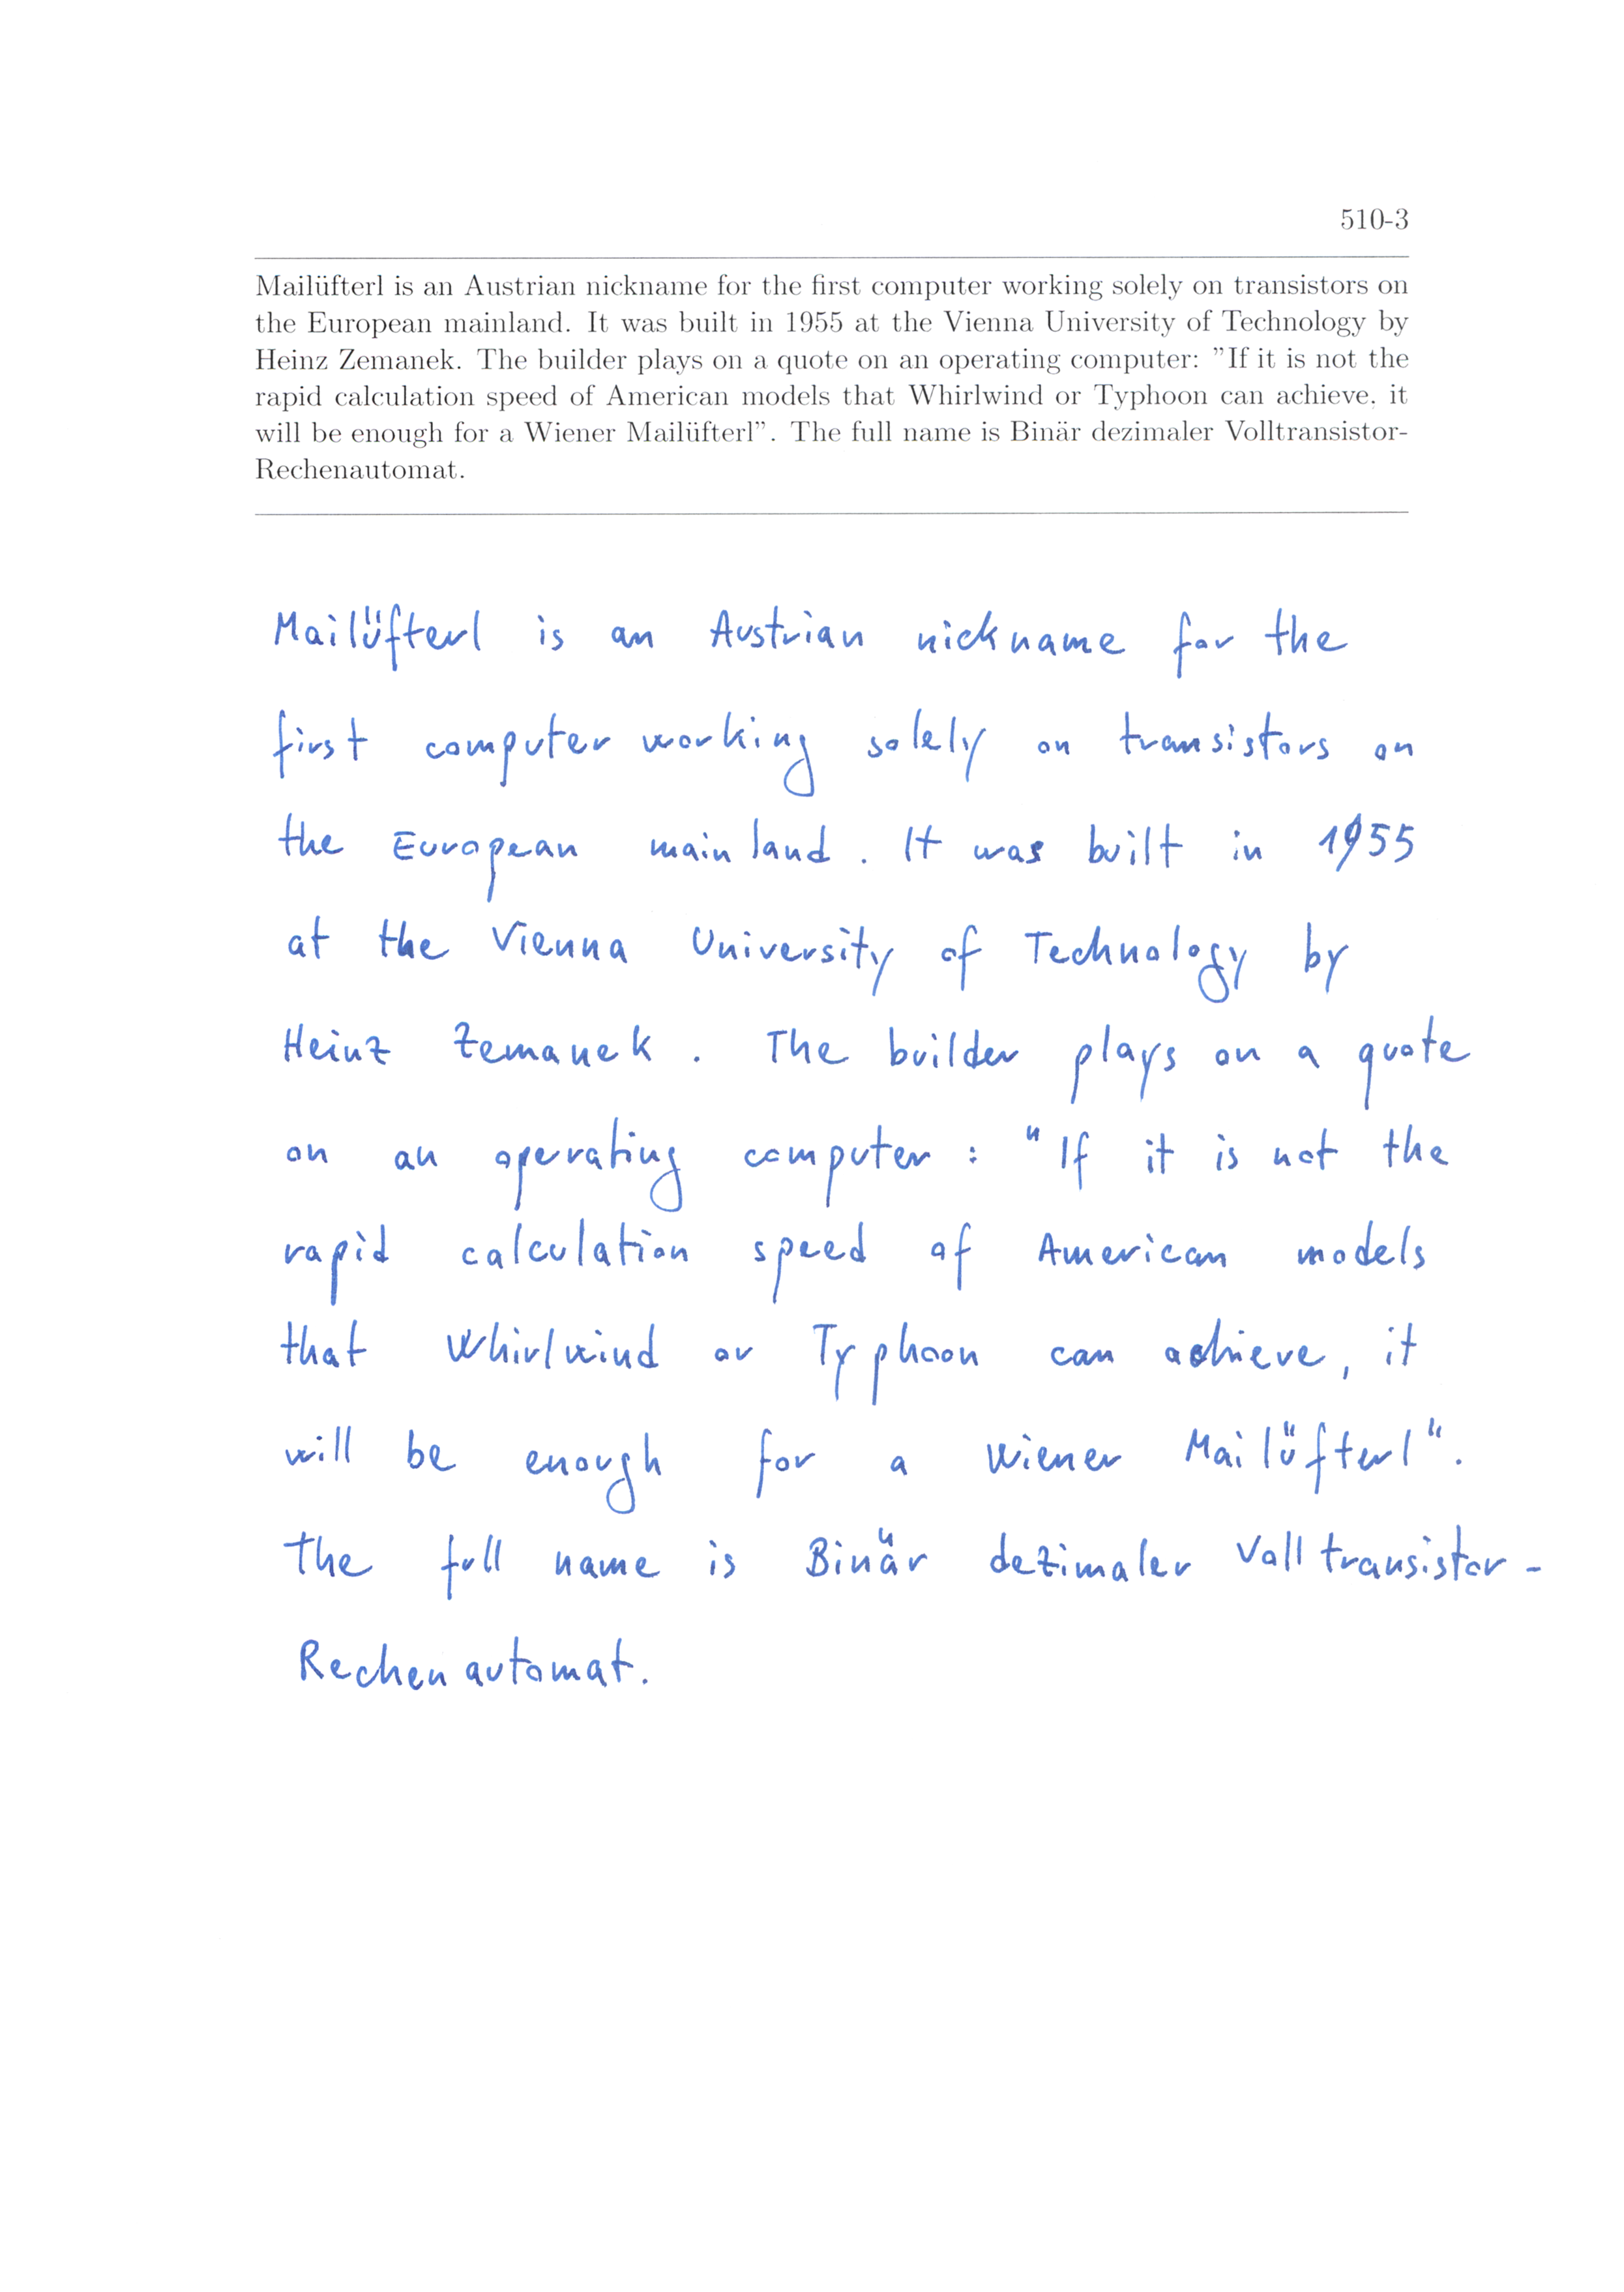 510-3
Mailüfterl is an Austrian nickname for the first computer working solely on transistors on
the European mainland. It was built in 1955 at the Vienna University of Technology by
Heinz Zemanek. The builder plays on a quote on an operating computer: "If it is not the
rapid calculation speed of American models that Whirlwind or Typhoon can achieve, it
will be enough for a Wiener Mailüfterl". The full name is Binär dezimaler Volltransistor-
Rechenautomat.
Mailüfterl is an Austrian nickname for the
first computer working solely on transistors on
the European mainland. It was built in 1955
at the Vienna University of Technology by
Heinz Zemanek. The builder plays on a quote
on an operating computer: "If it is not the
rapid calculation speed of American models
that Whirlwind or Typhoon can achieve, it
will be enough for a Wiener Mailüfterl".
The full name is Binär dezimaler Volltransistor-
Rechenautomat.